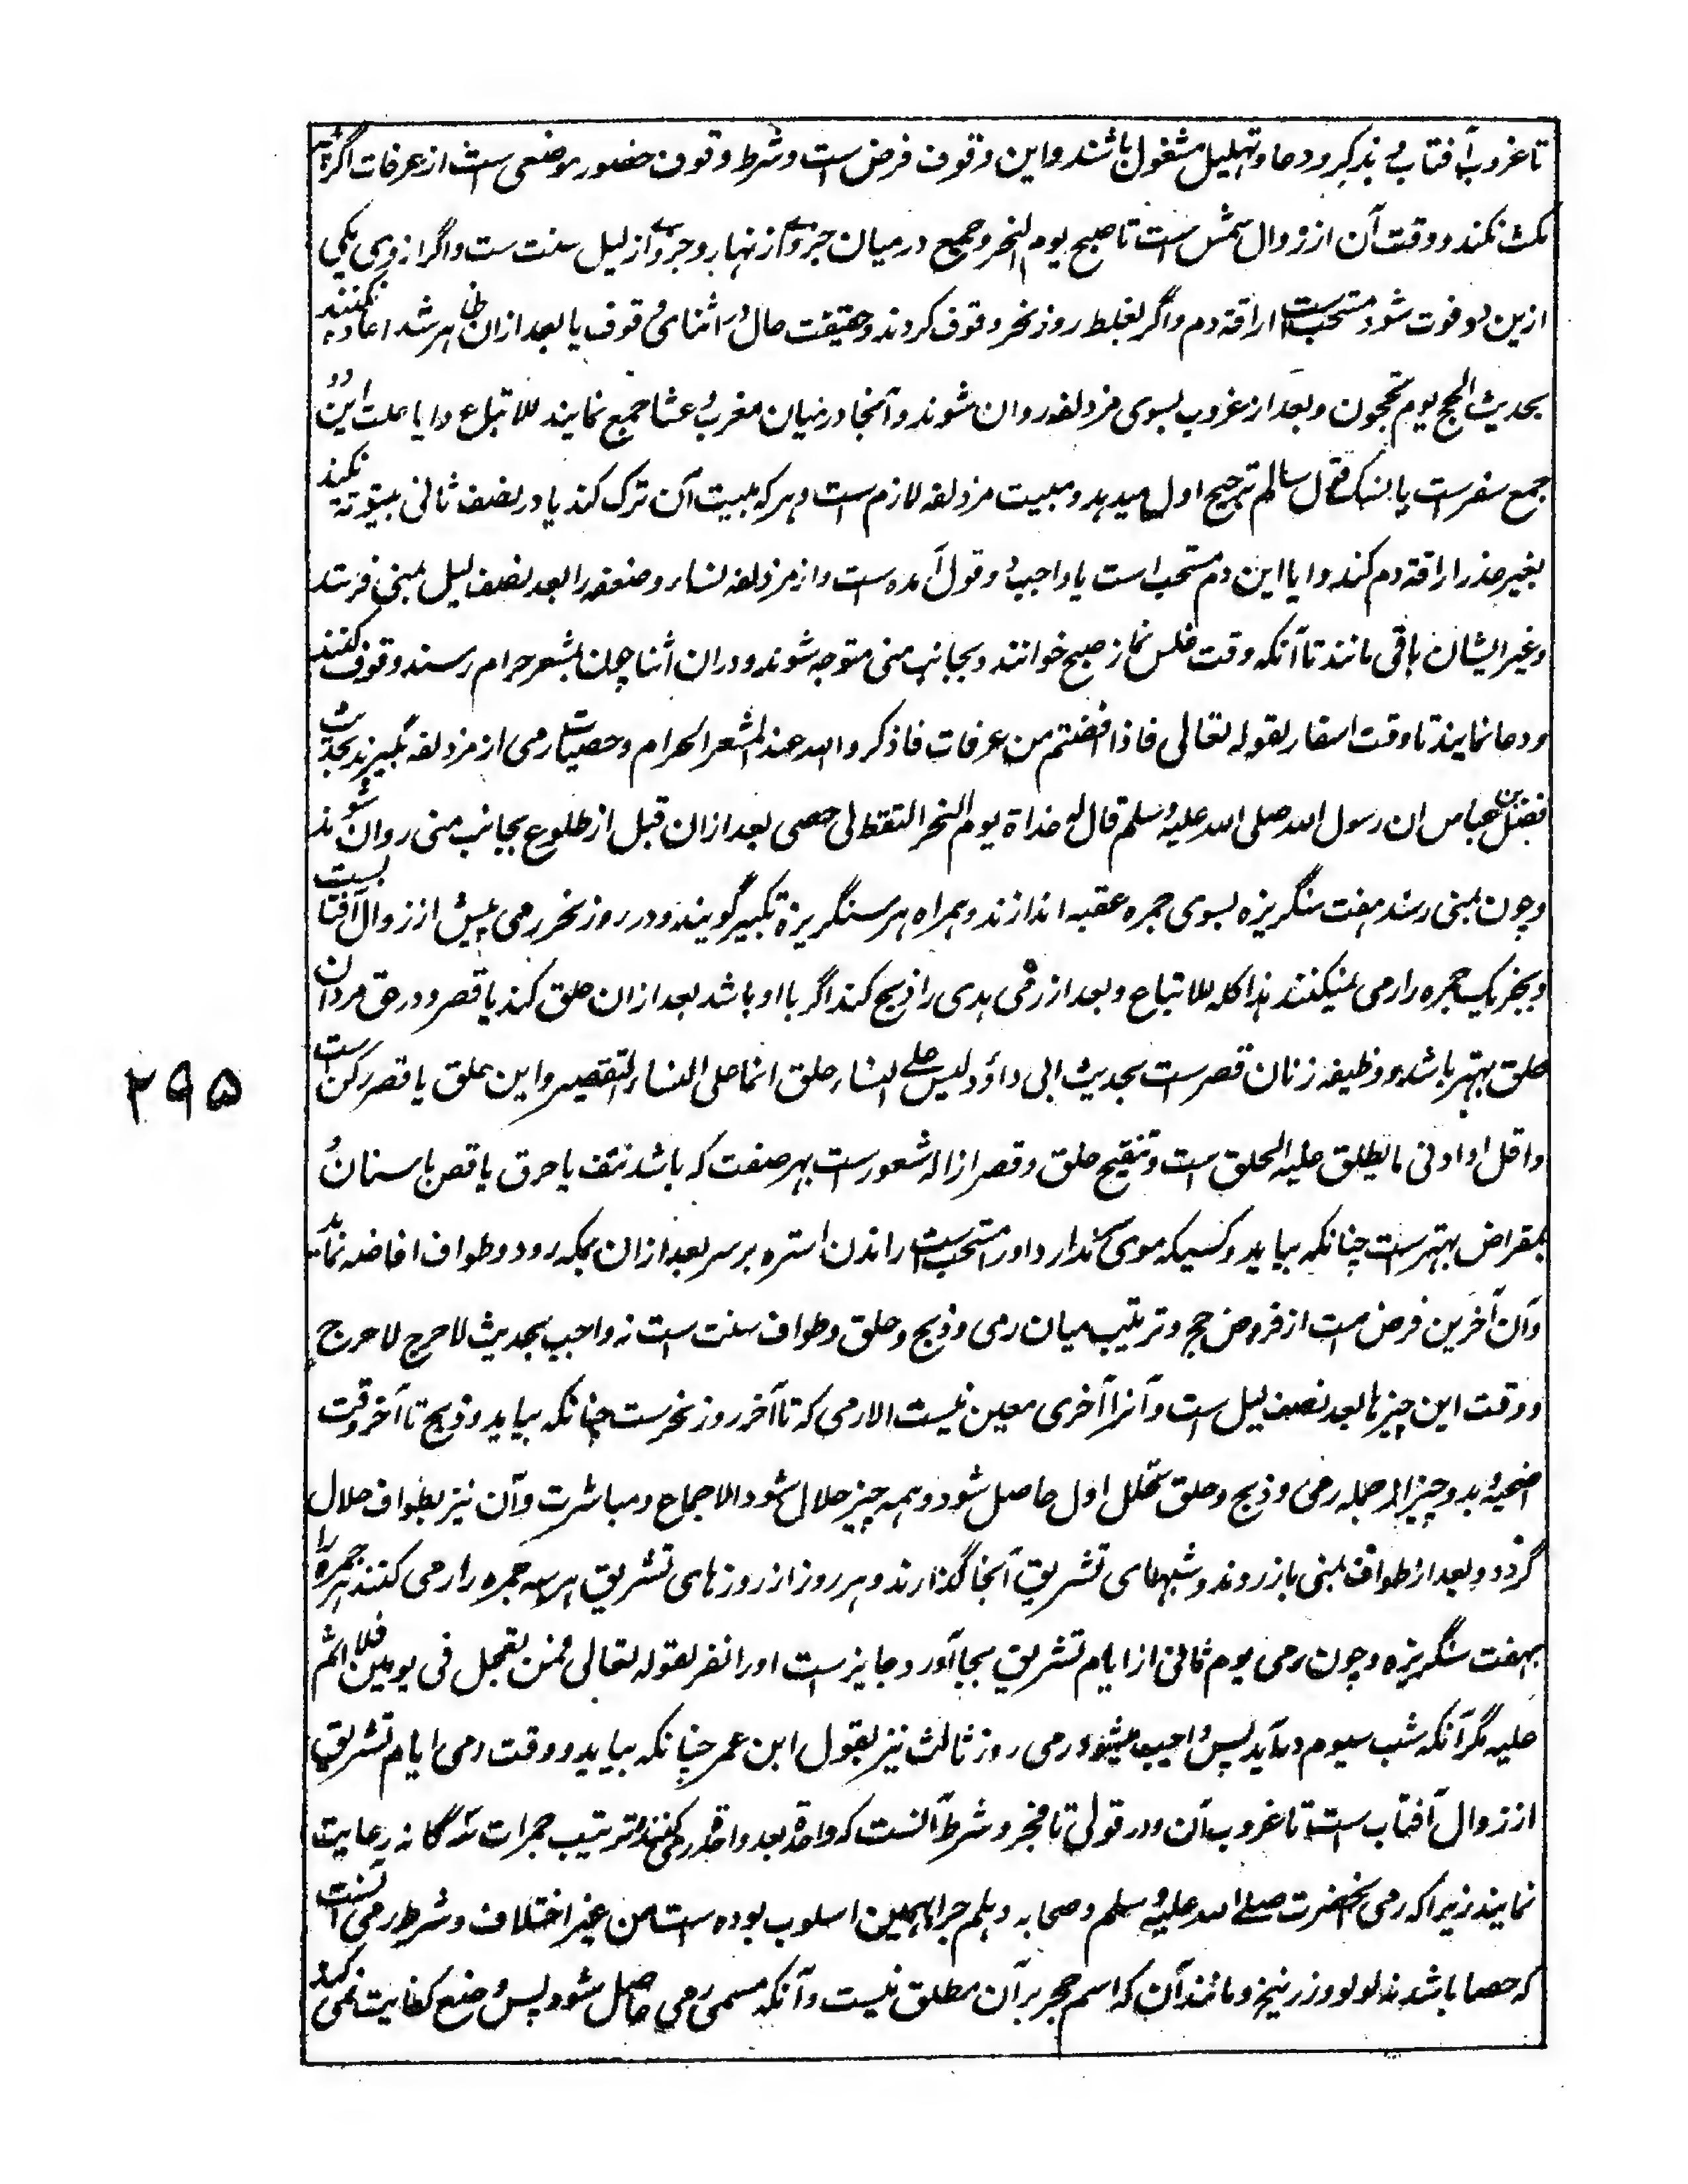 تا غروب آفتاب می بذکر و دعا و تهلیل مشغول باشند و این وقوف فرض ست و شرط وقوف حضور موضعی ست از عرفات اگرچه
مکث نکند و وقت آن از زوال شمس ست تا صبح یوم النحر و جمع در میان جزوی از نهار و جزوی از لیل سنت ست و اگر از وی یکی
ازین دو فوت شود مستحب ست اراقه دم و اگر بغلط روز نحر وقوف کردند و حقیقت حال در اثنای وقوف یا بعد ازان ظاهر شد اعاده نکنند
بحدیث الحج یوم تحجون و بعد از غروب بسوی مزدلفه روان شوند و آنجا درمیان مغرب و عشا جمع نمایند للاتباع و ایا علت این
جمع سفرست یا نسک قول سالم ترجیح اول میدهد و مبیت مزدلفه لازم ست و هر که مبیت آن ترک کند یا در نصف ثانی بیتوته نکند
بغیر عذر اراقه دم کند و ایا این دم مستحب است یا واجب دو قول آمده ست و از مزدلفه نساء و ضعفه را بعد نصف لیل بمنی فرستد
و غیر ایشان باقی مانند تا آنکه وقت غلس نماز صبح خوانند و بجانب منی متوجه شوند و دران اثنا چون بمشعر حرام رسند وقوف کنند
و دعا نمایند تا وقت اسفار لقوله تعالی فاذا افضتم من عرفات فاذکروا الله عند المشعر الحرام و حصیات رمی از مزدلفه بگیرند بحدیث
فضل بن عباس ان رسول الله صلی الله علیه وسلم قال له غداة یوم النحر التقط لی حصی بعد ازان قبل از طلوع بجانب منی روان شوند
و چون بمنی رسند هفت سنگریزه بسوی جمره عقبه اندازند و همراه هر سنگریزه تکبیر گویند و در روز نحر رمی پیش از زوال آفتاب ست
و بجز یک جمره را رمی نمیکنند هذا کله للاتباع و بعد از رمی هدی را ذبح کند اگر با او باشد بعد ازان حلق کند یا قصر و در حق مردان
حلق بهتر باشد و وظیفه زنان قصرست بحدیث ابی داؤد لیس علی النساء حلق انما علی النساء التقصیر و این حلق یا قصر رکن ست
و اقل او ادنی ما یطلق علیه الحلق ست و تنقیح حلق و قصر ازاله شعورست بهر صفت که باشد نتف یا حرق یا قص باسنان و
بمقراض بهترست چنانکه بیاید و کسیکه موی سر ندارد او را مستحب ست راندن استره بر سر بعد ازان بمکه رود و طواف افاضه نماید
و آن آخرین فرض ست از فروض حج و ترتیب میان رمی و ذبح و حلق و طواف سنت ست نه واجب بحدیث لا حرج لا حرج
و وقت این چیزها بعد نصف لیل ست و آنرا آخری معین نیست الا رمی که تا آخر روز نحرست چنانکه بیاید و ذبح تا آخر وقت
اضحیه و بدو چیز از جمله رمی و ذبح و حلق تحلل اول حاصل شود و همه چیز حلال شود الا جماع و مباشرت و آن نیز بطواف حلال
گردد و بعد از طواف بمنی باز روند و شبهای تشریق آنجا گذارند و هر روز از روزهای تشریق هر سه جمره را رمی کنند هر جمره را
بهفت سنگریزه و چون رمی یوم ثانی از ایام تشریق بجا آورد جایزست او را نفر لقوله تعالی فمن تعجل فی یومین فلا اثم
علیه مگر آنکه شب سیوم درآید پس واجب میشود رمی روز ثالث نیز بقول ابن عمر چنانکه بیاید و وقت رمی ایام تشریق
از زوال آفتاب ست تا غروب آن و در قولی تا فجر و شرط آنست که واحدة بعد واحدة رمی کنند و ترتیب جمرات سه گانه رعایت
نمایند زیرا که رمی آنحضرت صلی الله علیه وسلم و صحابه و هلم جرا بهمین اسلوب بوده ست من غیر اختلاف و شرط رمی آنست
که حصا باشد نه لولو و زرنیخ و مانند آن که اسم حجر بر آن مطلق نیست و آنکه مسمی رمی حاصل شود پس وضع کفایت نمی کند
۲۹۵